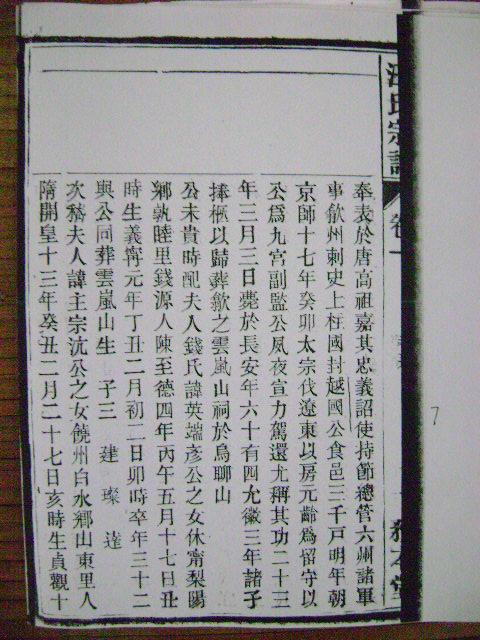 汪氏宗譜
卷一
奉表於唐高祖嘉其忠義詔使持節總管六州諸軍
事歙州刺史上柱國封越國公食邑三千戶明年朝
京師十七年癸卯太宗伐遼東以房元齡爲留守以
公爲九宮副監公夙夜宣力駕還尤稱其功二十三
年三月三日薨於長安年六十有四允徽三年諸子
捧櫬以歸葬歙之雲嵐山祠於烏聊山
公未貴時配夫人錢氏諱英端彥公之女休甯梨陽
鄉孰睦里錢源人陳至德四年丙午五月十七日丑
時生義甯元年丁丑二月初二日卯時卒年三十二
與公同葬雲嵐山生 子三 建 璨 達
次嵇夫人諱主宗沇公之女饒州白水鄉山東里人
隋開皇十三年癸丑二月二十七日亥時生貞觀十
7